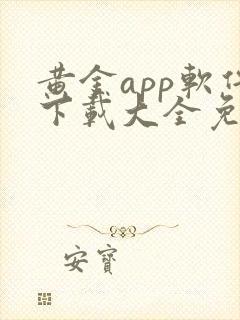 黃金app軟件
下載大全免
安寶